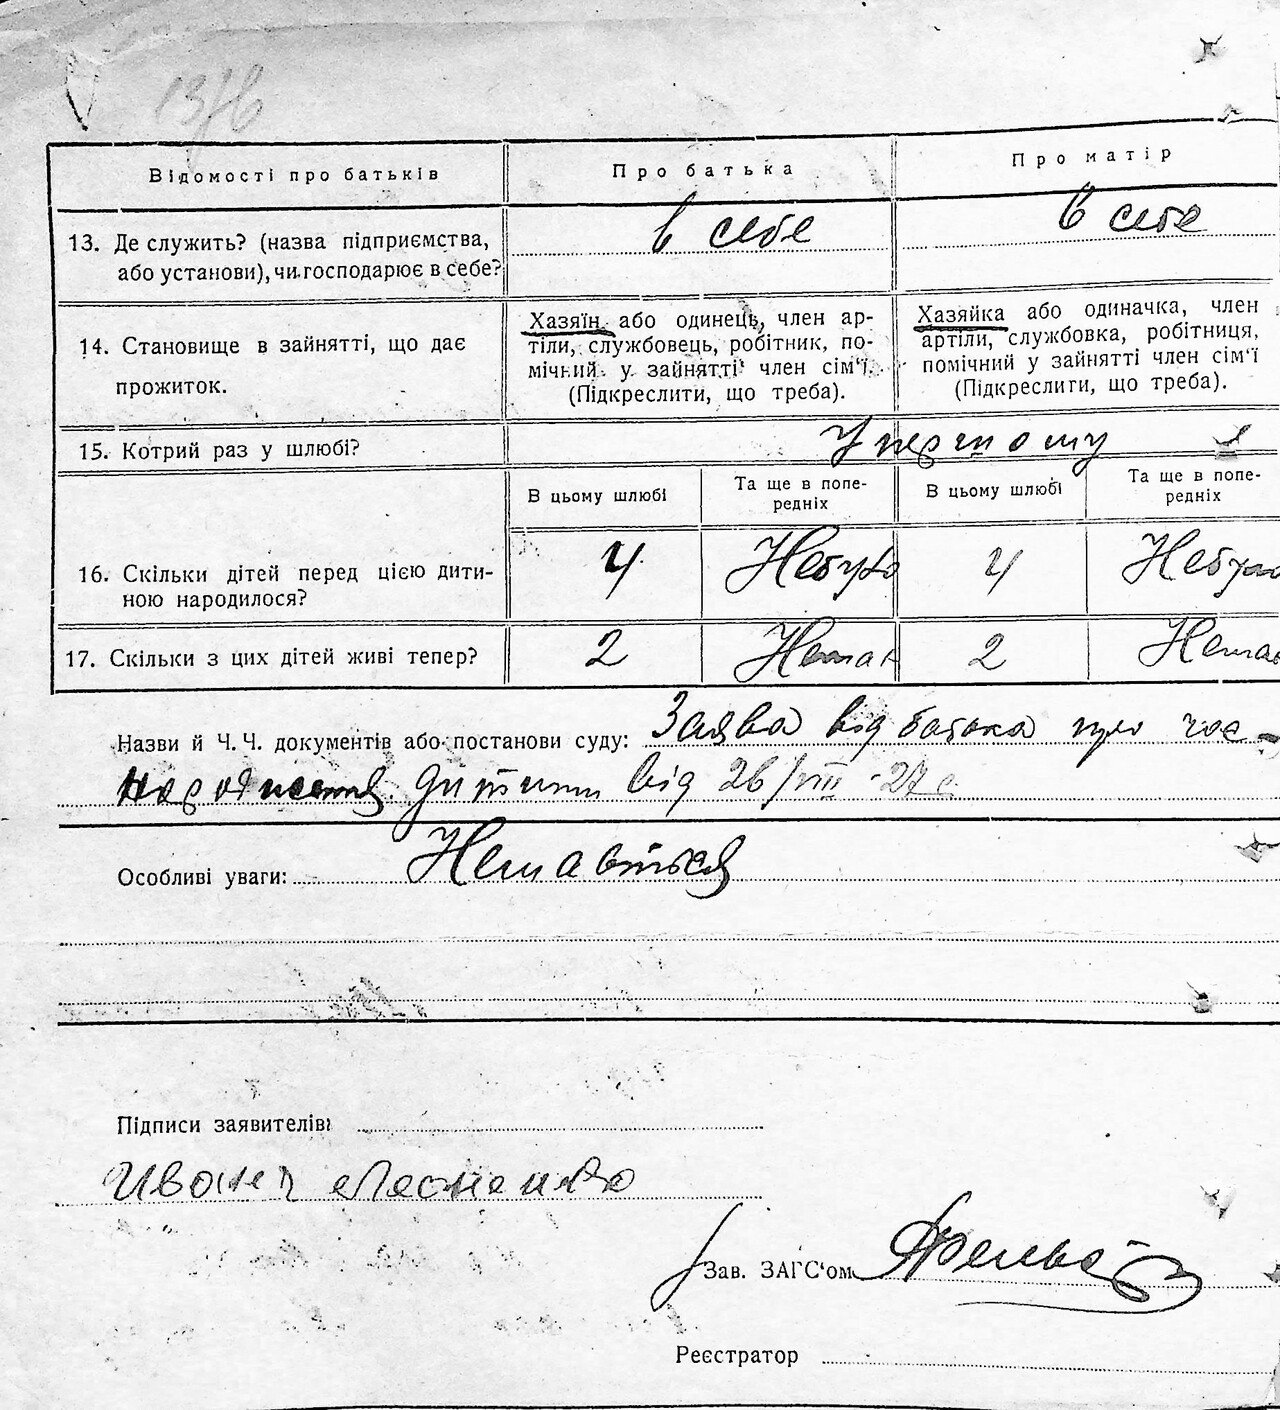 137б
Відомості про батьків Про батька Про матір
13. Де служить? (назва підприємства, в себе в себе
або установи), чи господарює в себе?
Хазяїн або одинець, член ар- Хазяйка або одиначка, член
14. Становище в зайнятті, що дає тіли, службовець, робітник, по- артіли, службовка, робітниця,
прожиток. мічний у зайнятті член сім'ї. помічний у зайнятті член сім'ї
(Підкреслити, що треба). (Підкреслити, що треба).
15. Котрий раз у шлюбі? У першому
В цьому шлюбі Та ще в попе- В цьому шлюбі Та ще в попе-
редніх редніх
16. Скільки дітей перед цією дити- 4 Небуло 4 Небуло
ною народилося?
17. Скільки з цих дітей живі тепер? 2 Немає 2 Немає
Назви й Ч. Ч. документів або постанови суду: Заява від батька про час
народження дитини від 26/VIII-27 с.
Особливі уваги: Немається
Підписи заявителів:
Иван
Зав. ЗАГС'ом
Реєстратор